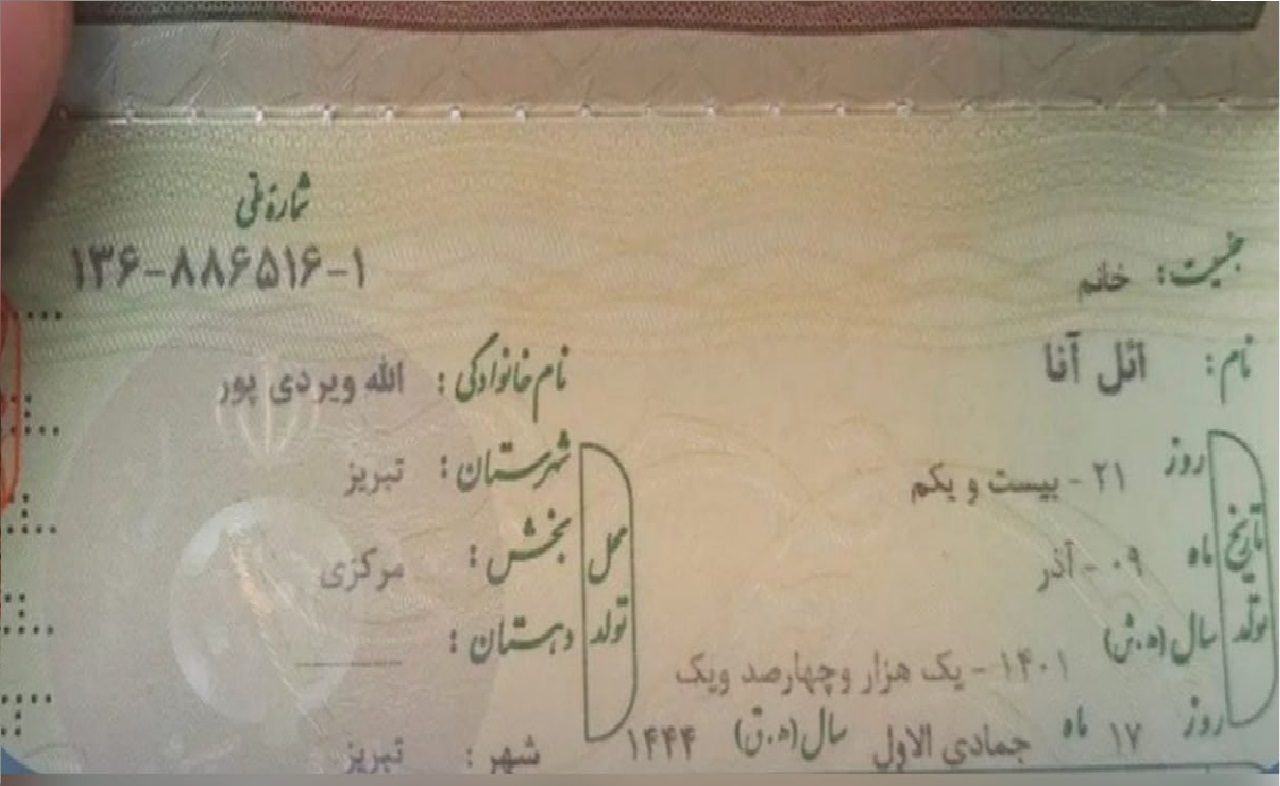 شماره ملی
۱۳۶-۸۸۶۵۱۶-۱
جنسیت: خانم
نام: ائل آنا
نام خانوادگی: الله ویردی پور
تاریخ تولد
روز ۲۱ - بیست و یکم
ماه ۰۹ - آذر
سال (ه.ش) ۱۴۰۱ - یک هزار وچهارصد ویک
روز ۱۷ ماه جمادی الاول سال (ه.ق) ۱۴۴۴
محل تولد
شهرستان: تبریز
بخش: مرکزی
دهستان:
شهر: تبریز